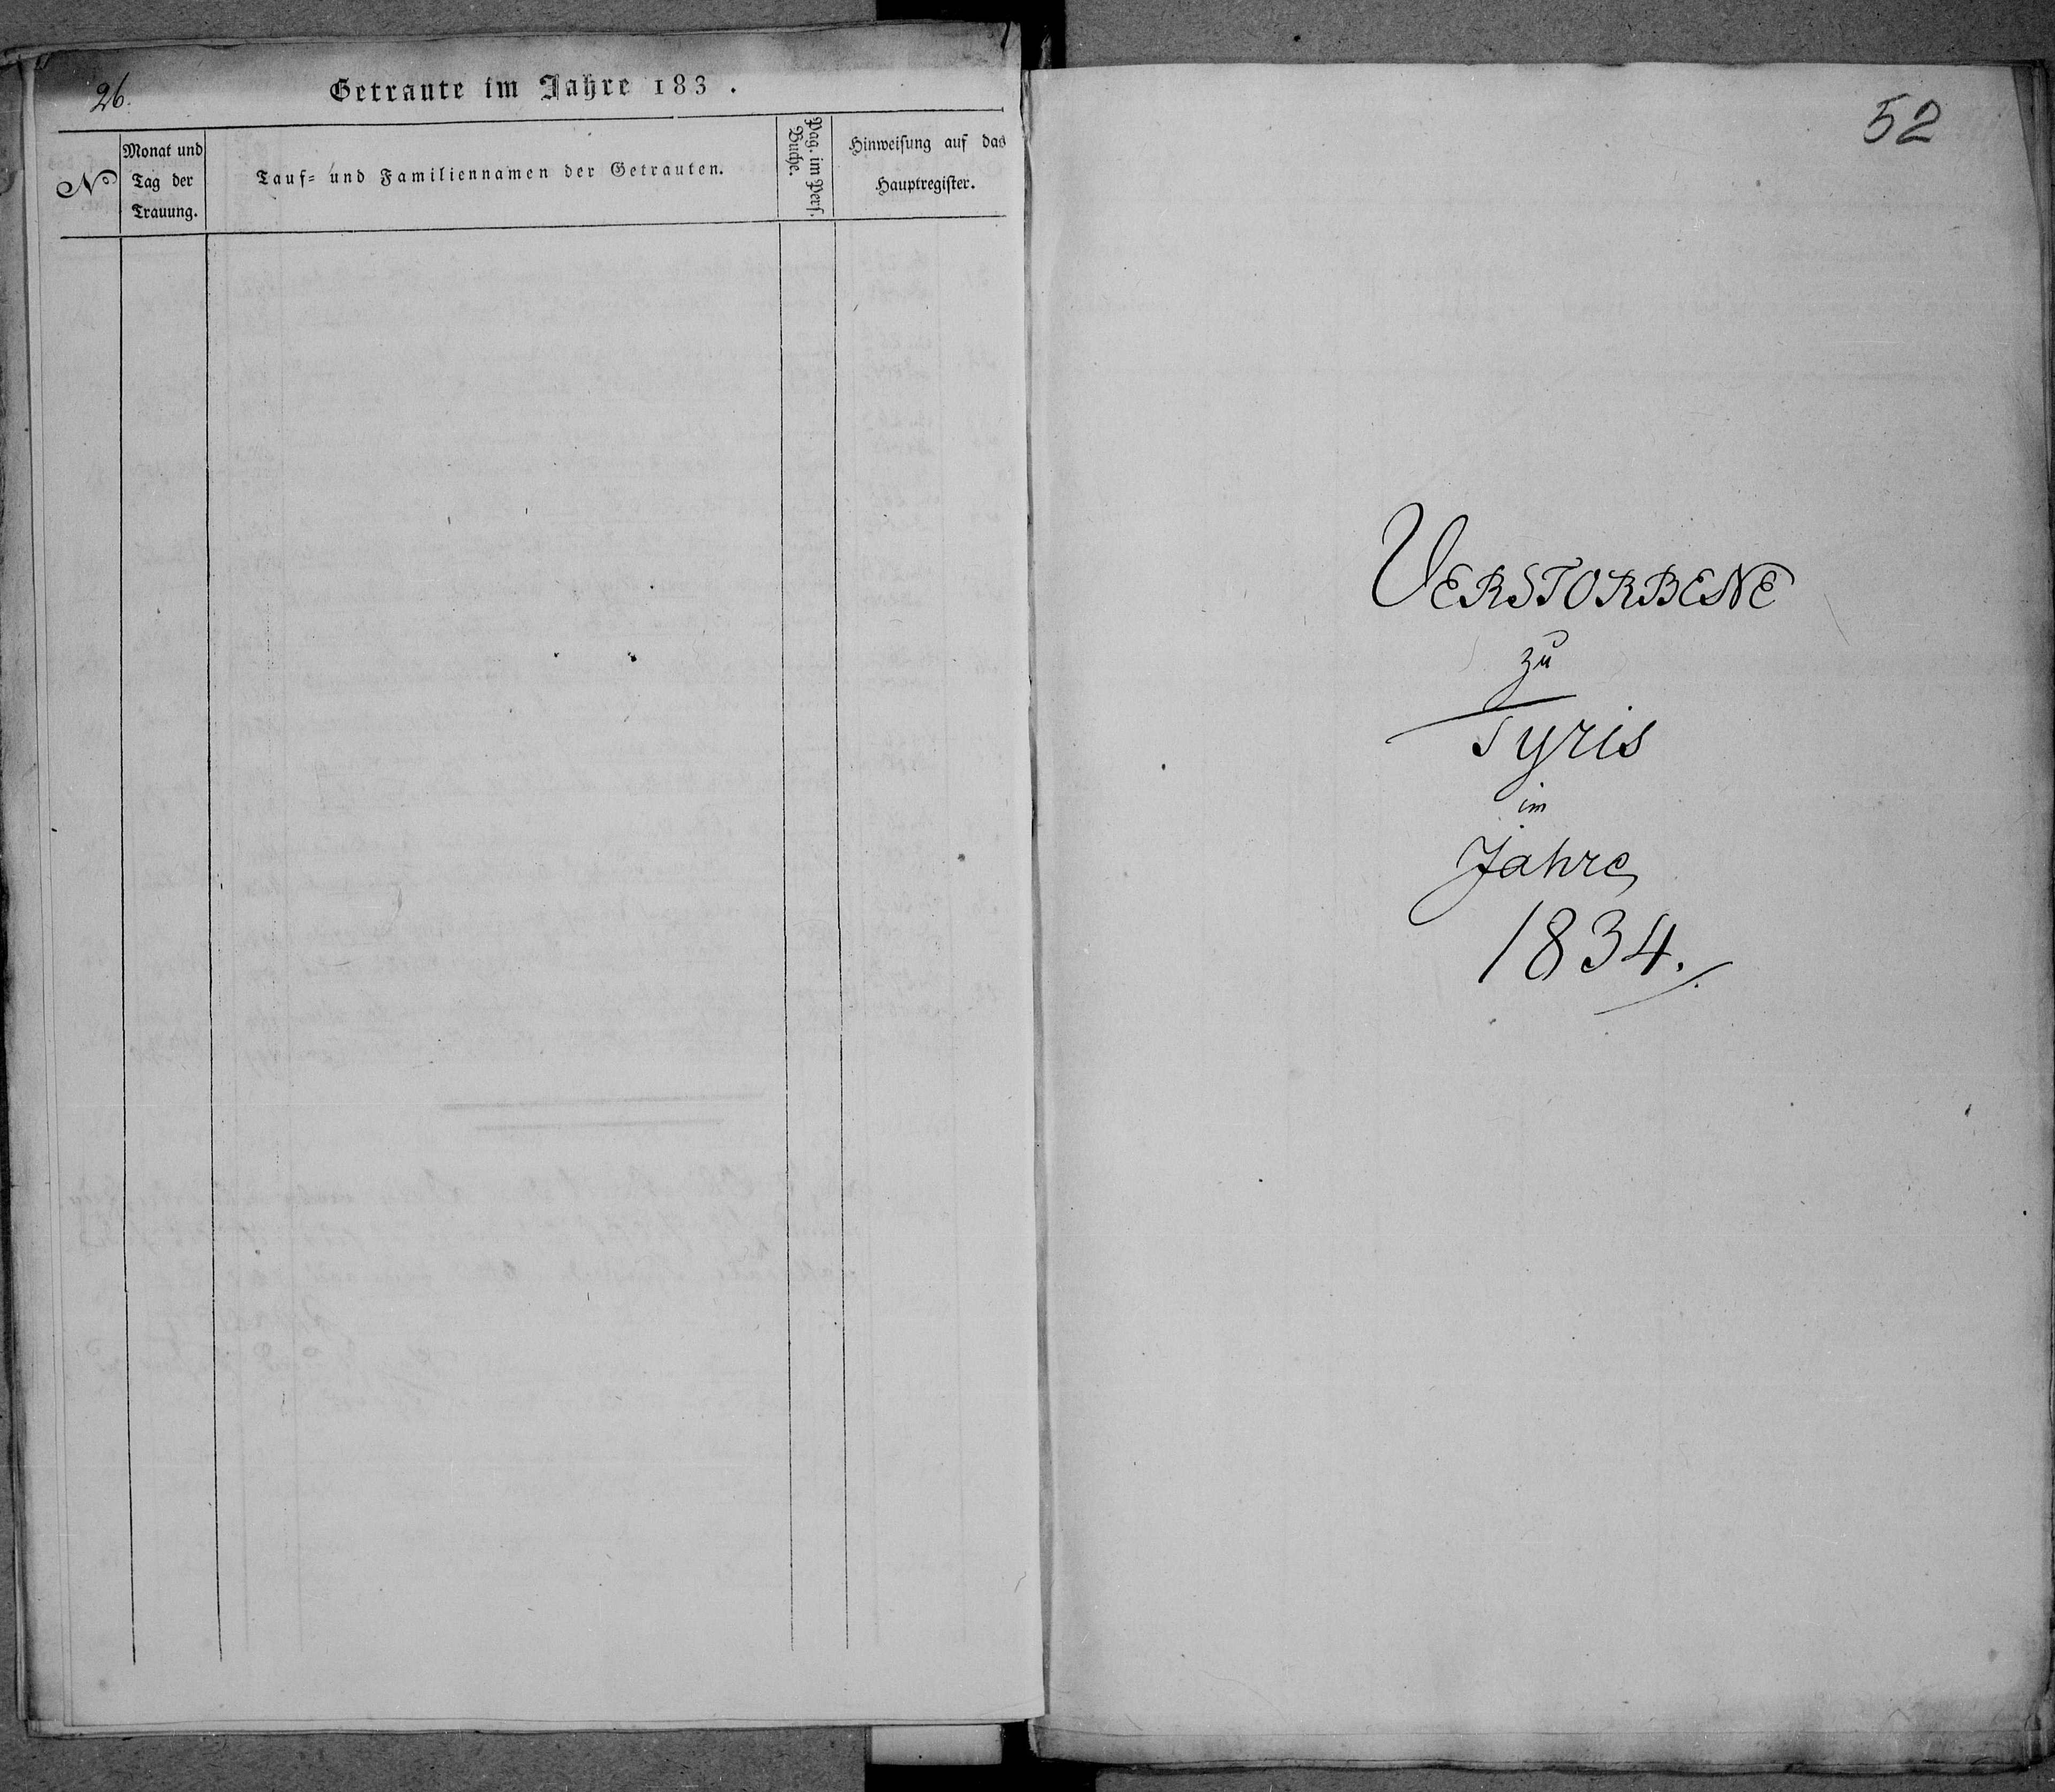 26.
Getraute im Jahre 183 .
No
Monat und
Tag der
Trauung.
Tauf= und Familiennamen der Getrauten.
Pag. im Pers.
Buche.
Hinweisung auf das
Hauptregister.
52
VERSTORBENE
zu
Tyris
im
Jahre
1834.